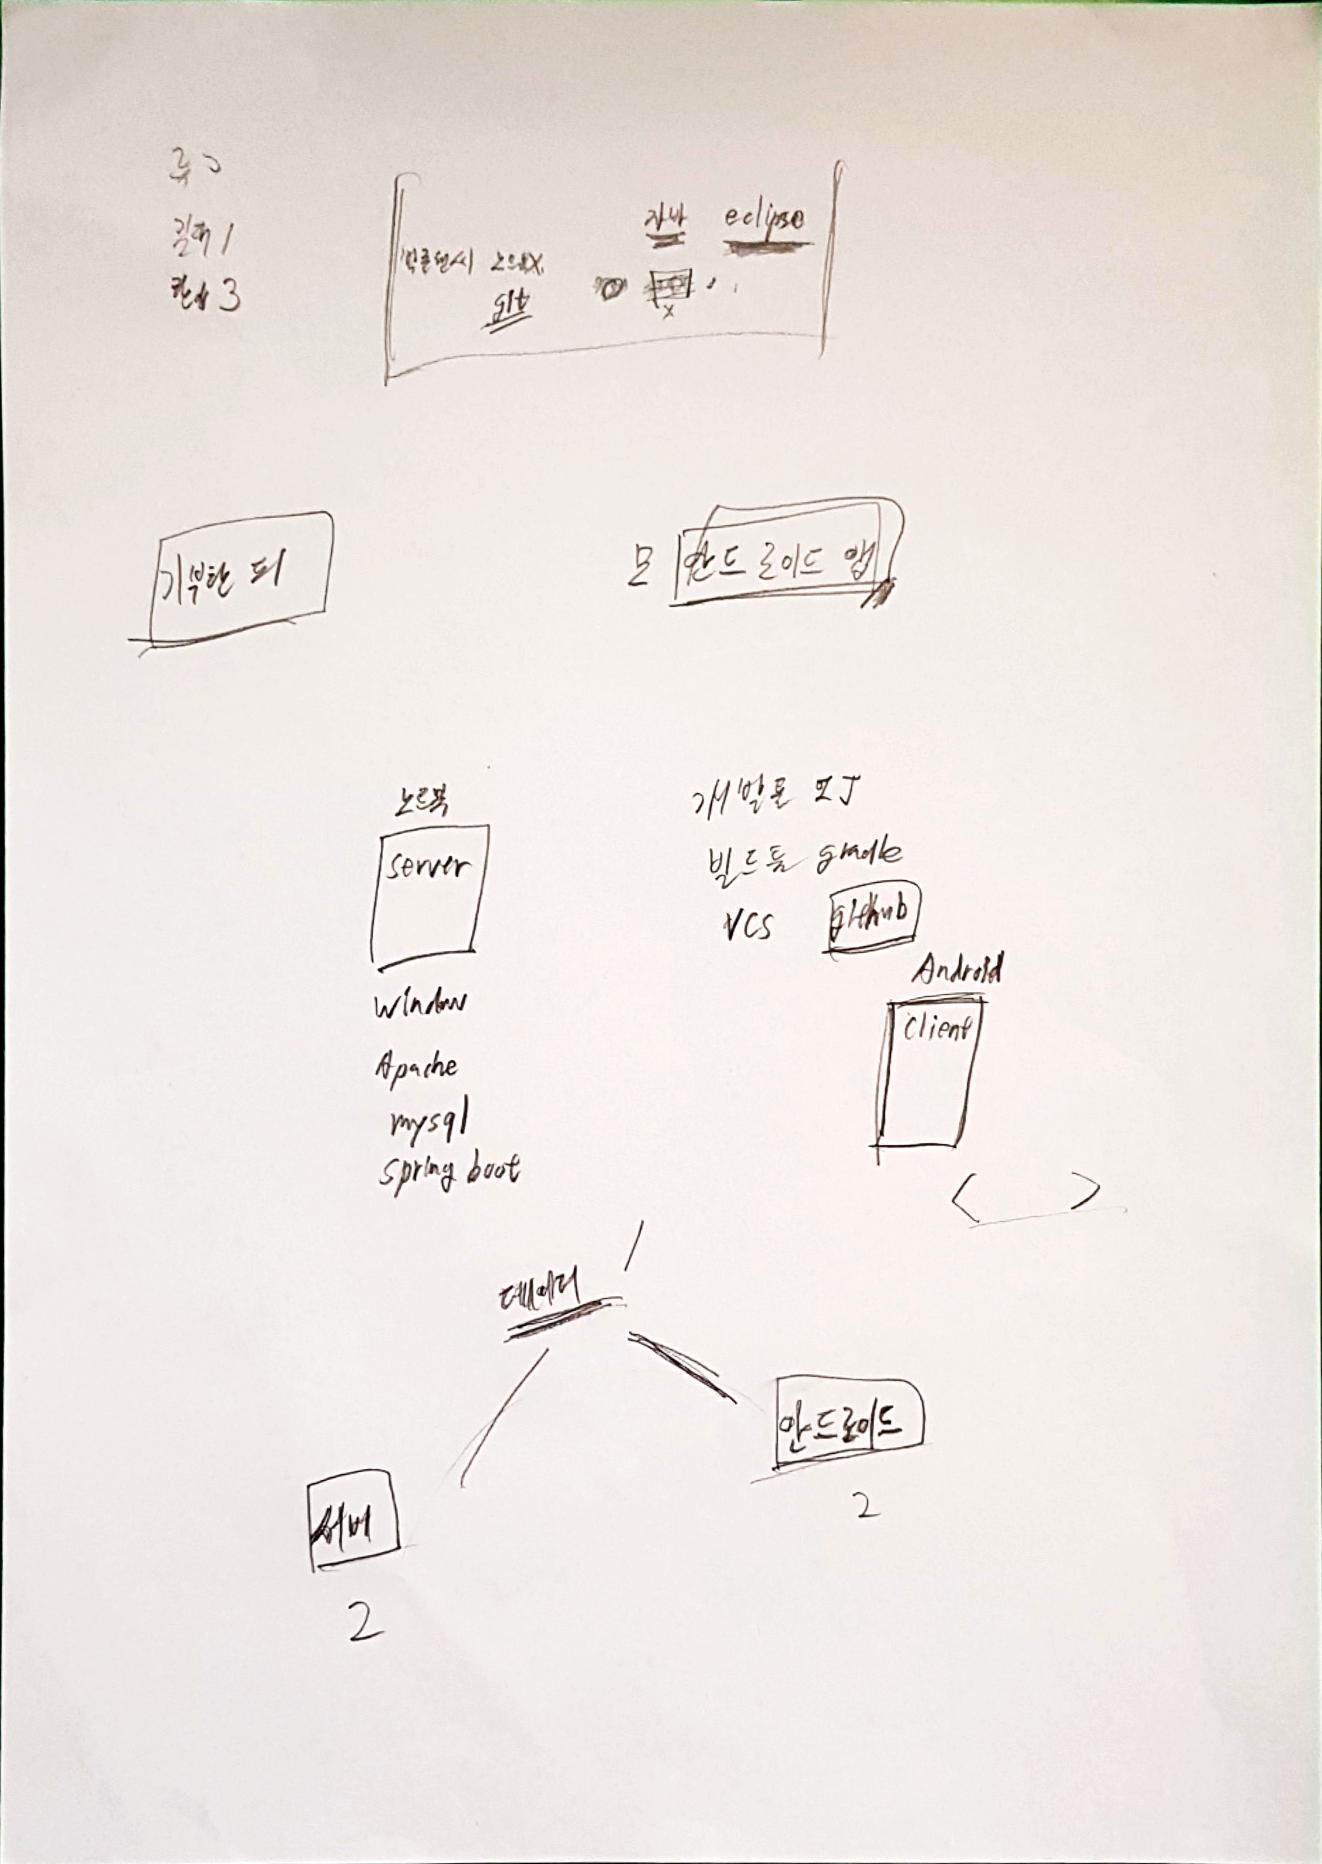 자바 eclipse
git
기부한 피
모 안드로이드 앱
노트북
server
window
Apache
mysql
spring boot
개발툴 IJ
빌드툴 gradle
VCS github
Android
client
데이터
안드로이드
2
서버
2